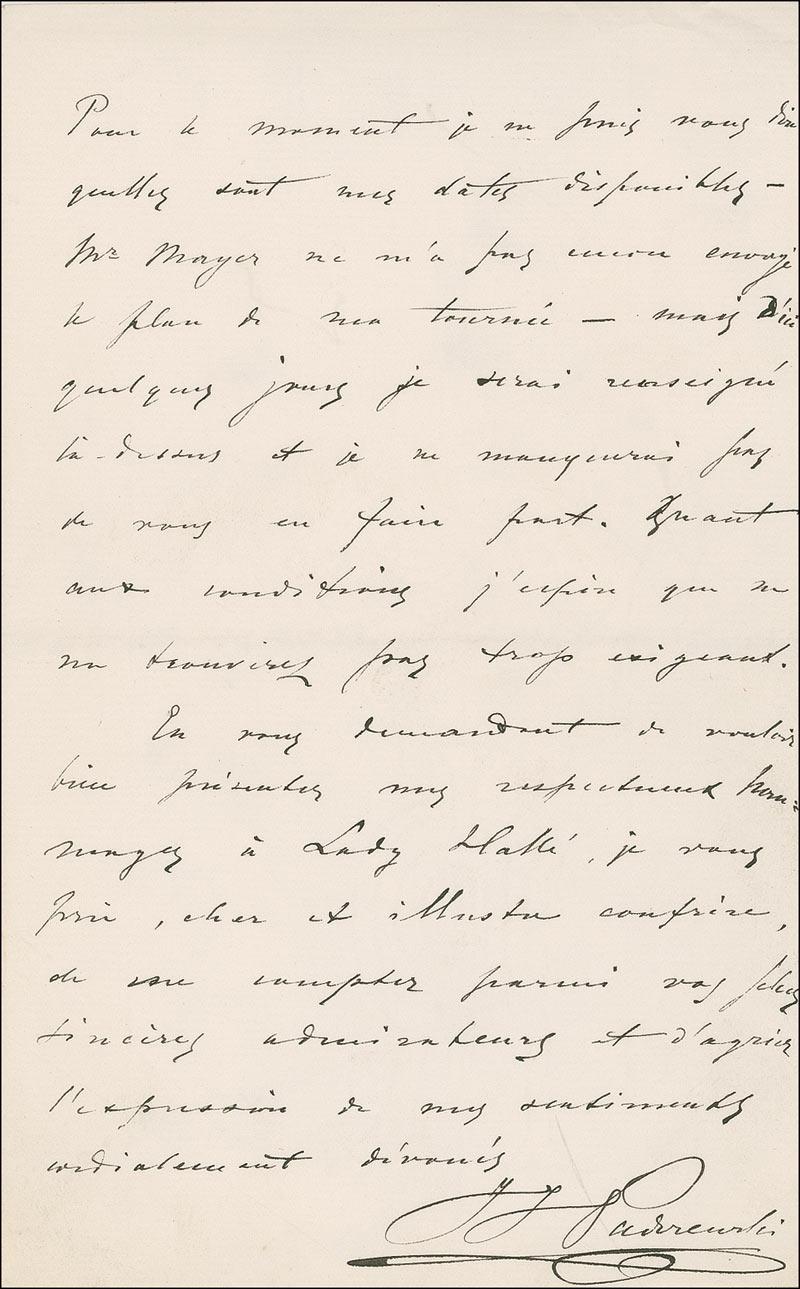 Pour le moment je ne puis vous dire
quelles sont mes dates disponibles –
Mr Mayer ne m'a pas encore envoyé
le plan de ma tournée – mais d'ici
quelques jours je serai renseigné
là-dessus et je ne manquerai pas
de vous en faire part. Quant
aux conditions j'espère que ne
me trouverez pas trop exigeant.
En vous demandant de vouloir
bien présenter mes respectueux hom-
mages à Lady Hallé, je vous
prie, cher et illustre confrère,
de me compter parmi vos plus
sincères admirateurs et d'agréer
l'expression de mes sentiments
cordialement dévoués
J J Paderewski